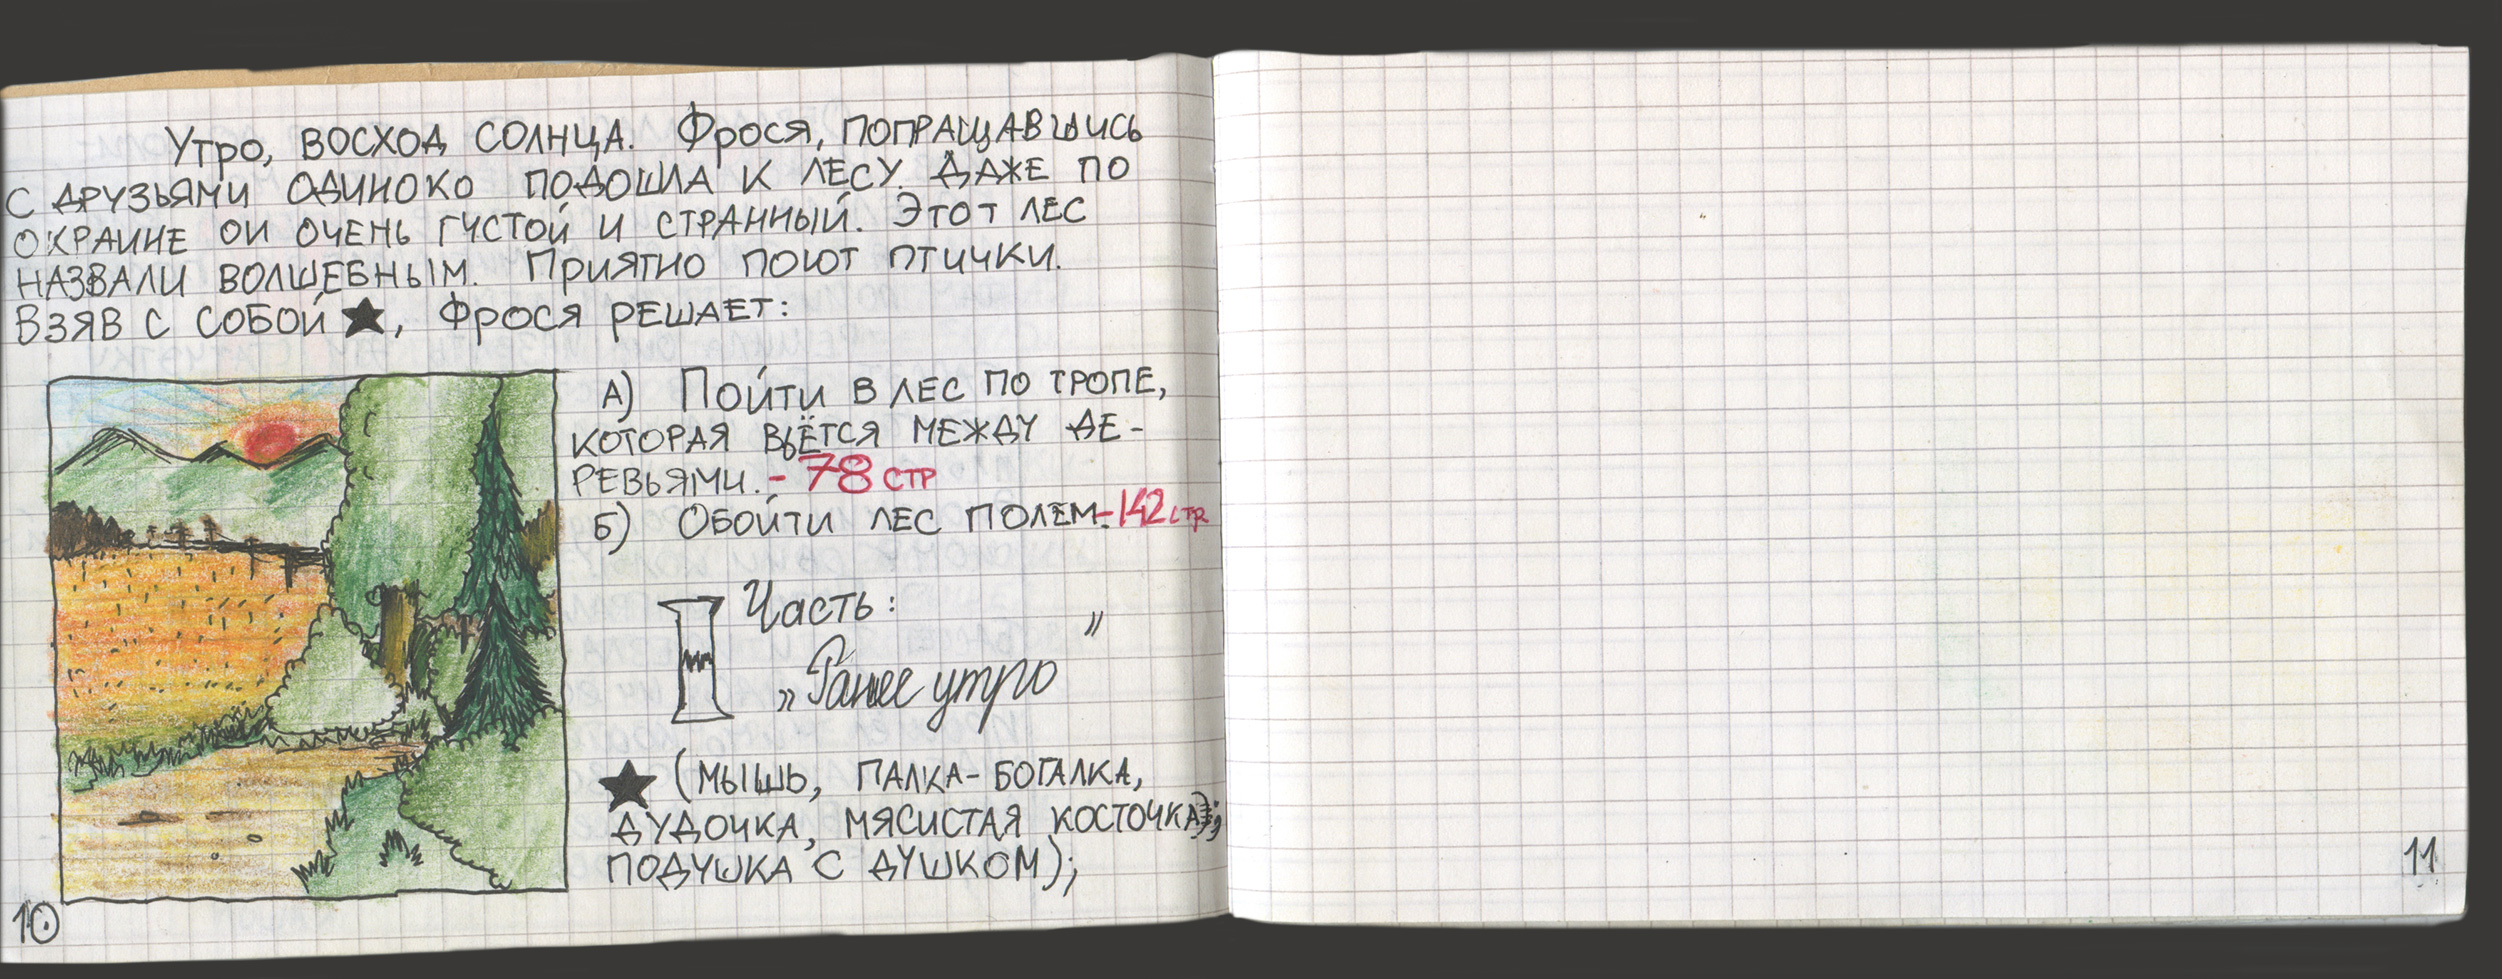 Утро, восход солнца. Фрося, попращавшись
с друзьями одиноко подошла к лесу. Даже по
окраине он очень густой и странный. Этот лес
назвали волшебным. Приятно поют птички.
Взяв с собой ★, Фрося решает:
А) Пойти в лес по тропе,
которая вьётся между де-
ревьями. - 78 стр
Б) Обойти лес полем. - 142 стр
I Часть:
„Ранее утро"
★ (мышь, палка-богалка,
дудочка, мясистая косточка,
подушка с душком);
10
11